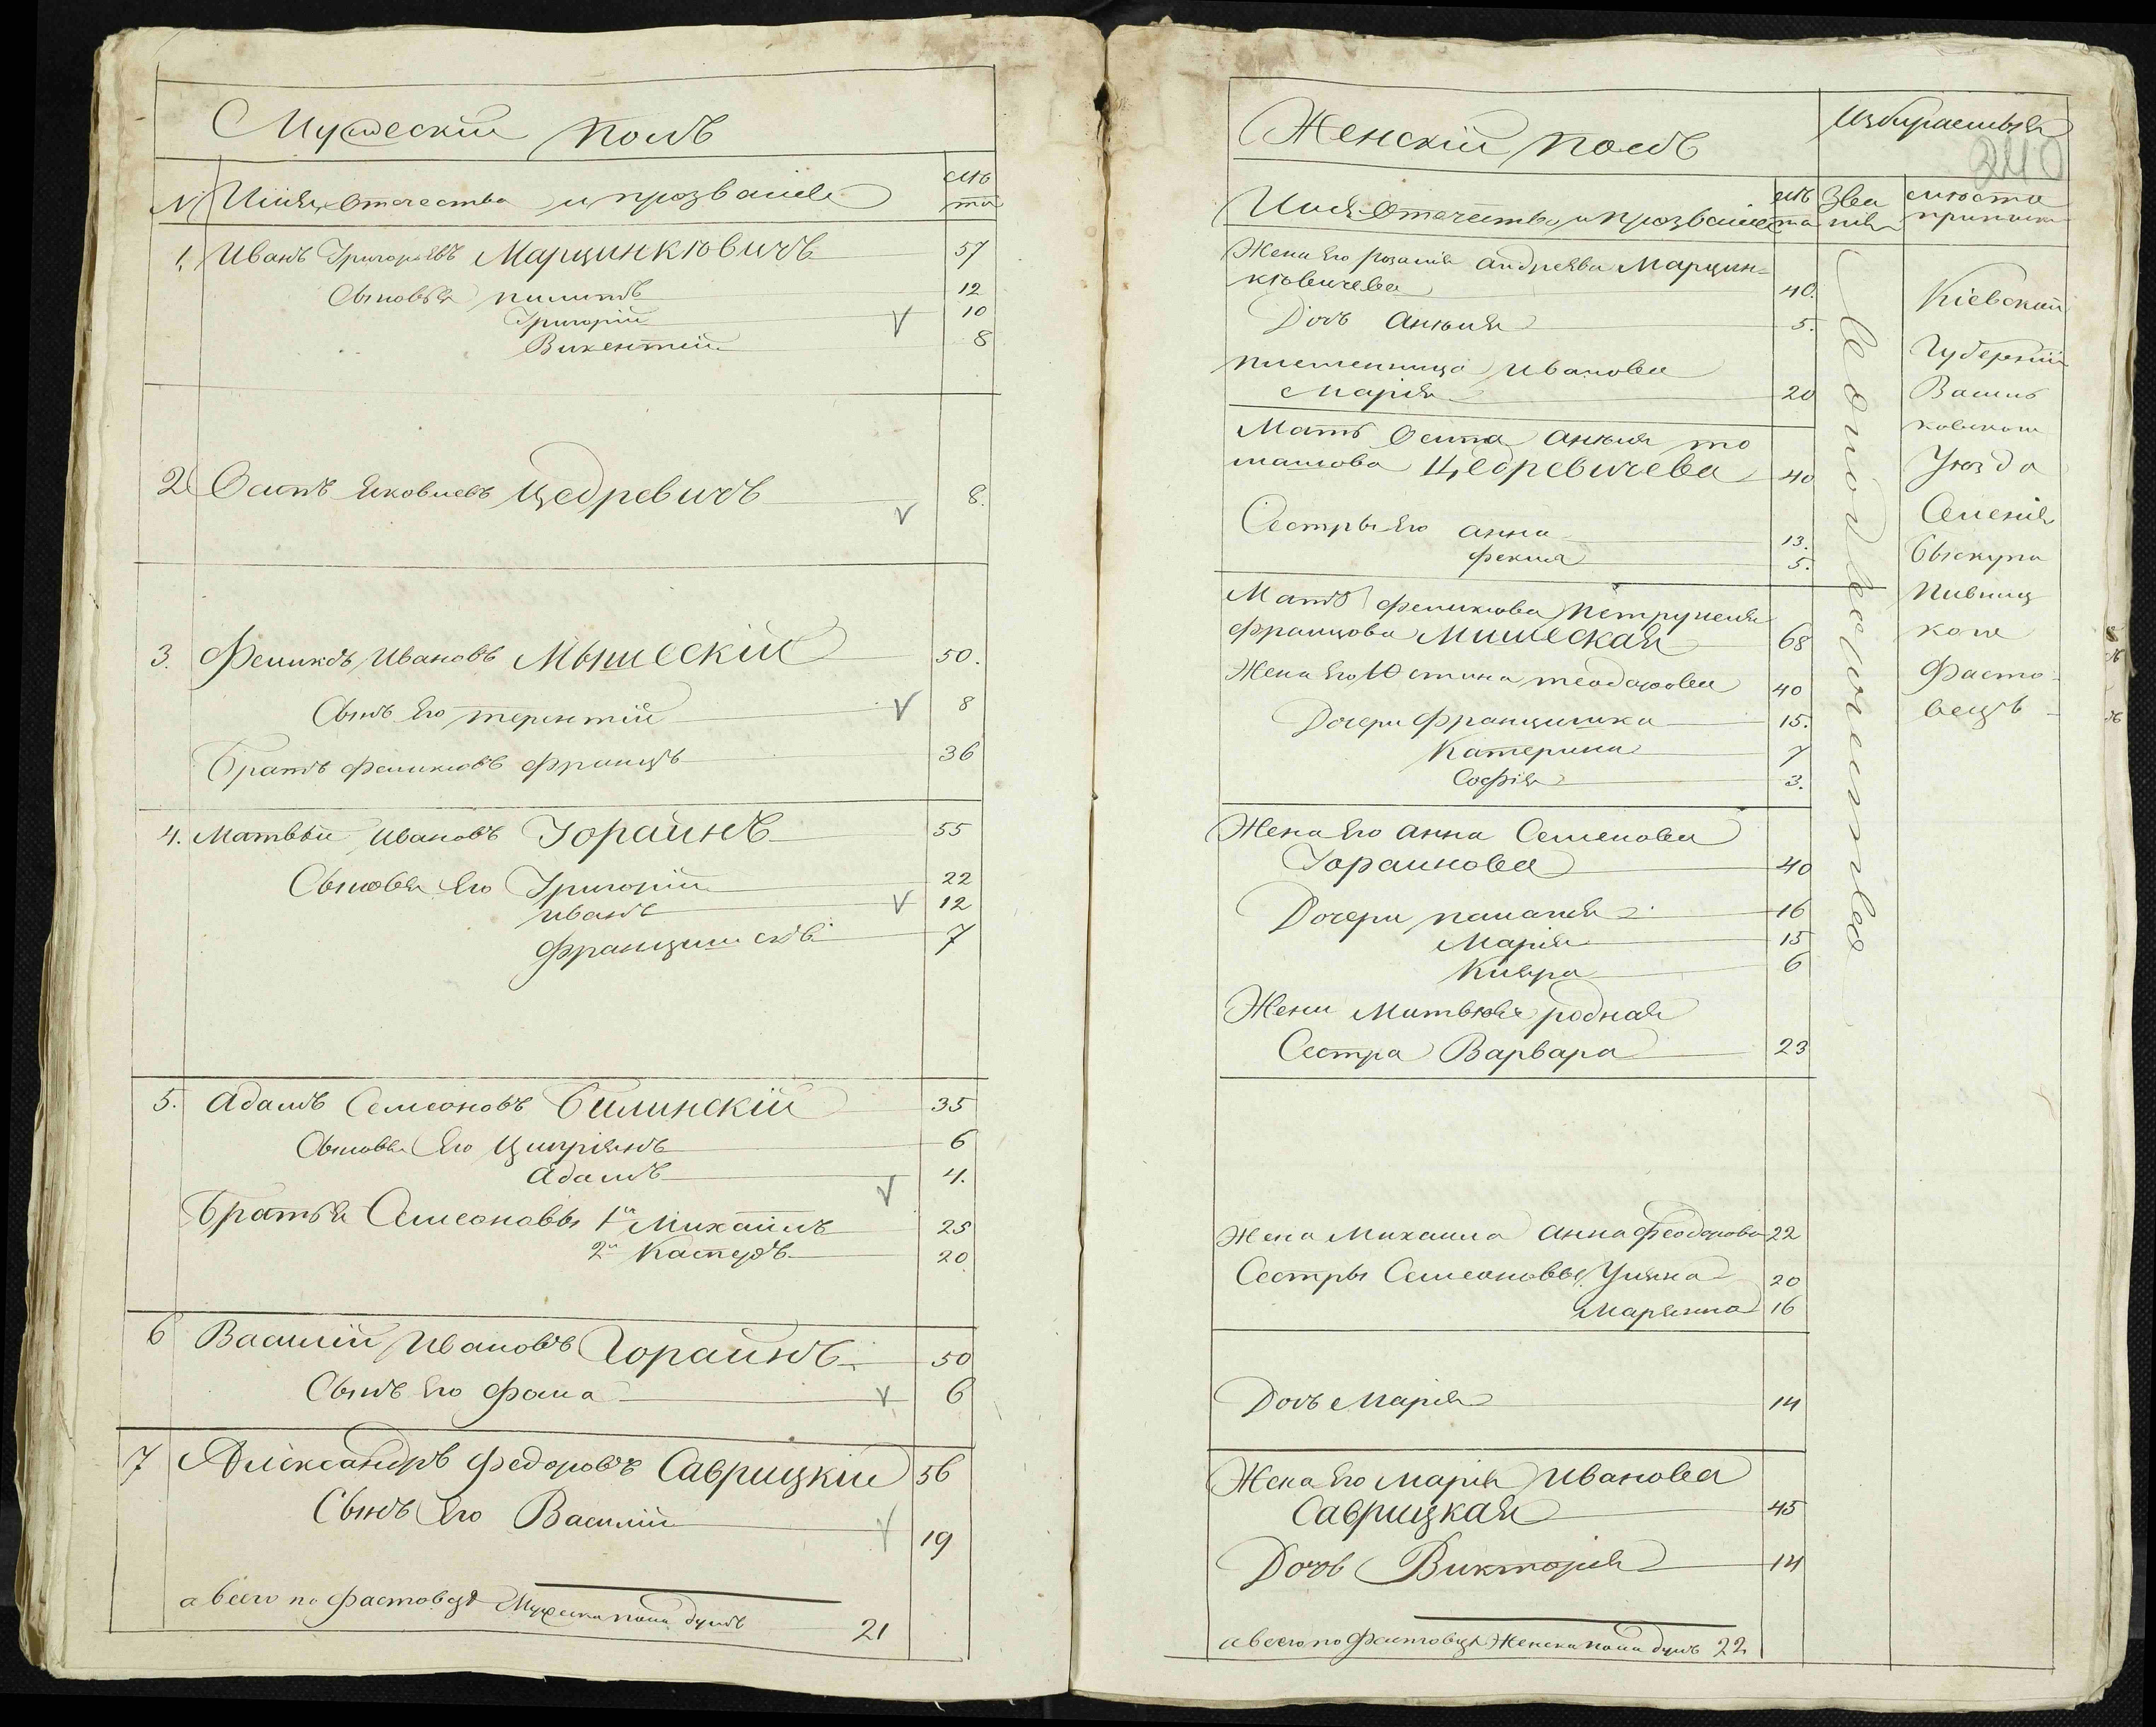 Мужескій полъ
№ Имя, Отечество и прозваніе
лѣ
та
1. Иванъ Григорьевъ Марцинкѣвичъ 57
Сыновья Филипъ 12
Григорій 10
Викентій 8
2 Осипъ Яковлевъ Цедревичъ 8.
3. Феликсъ Ивановъ Мышескій 50.
Сынъ Его терентій 8
Братъ Феликсовъ Францъ 36
4. Матвѣй Ивановъ Горайнъ 55
Сыновья Его Григорій 22
иванъ 12
Францишскъ 7
5. Адамъ Семеоновъ Билинскій 35
Сыновья Его Циприянъ 6
Адамъ 4.
Братья Семеоновы 1й Михаилъ 25
2й Касперъ 20
6 Василій Ивановъ Горайнъ 50
Сынъ Его Фома 6
7 Александръ Федоровъ Саврицкій 56
Сынъ Его Василій 19
а всего по Фастовцѣ Мужеска пола душъ 21
Женскій полъ
Избираемыя
240
Имя Отечество и прозваніе
лѣ
та
Зва
ніе
мѣсто
приписки
Жена Его розалія андреева Марцин-
кѣвичева 40.
Дочь Анюля 5.
племенница иванова
Марія 20
Мать Осипа Анюля то
машова Цедревичева 40
Сестры Его анна 13.
фекла 5.
Мать Феликсова Петрунеля
францова Мишеская 68
Жена Его Юстина теодорова 40
Дочери Францишка 15.
Катерина 7
Софія 3.
Жена Его анна Семенова
Гораинова 40
Дочери палагія 16
Марія 15
Кляра 6
Жены Матвѣя родная
Сестра Варвара 23
Жена Михаила Анна Феодорова 22
Сестры Семеоновы Уляна 20
Маріянна 16
Дочь Марія 14
Жена Его Марія Иванова
Саврицкая 45
Дочь Викторія 14
а всего по Фастовцѣ Женска пола душъ 22
Кіевской
Губерніи
Василь
ковскаго
Уѣзда
Селенія
Фасто-
вецъ